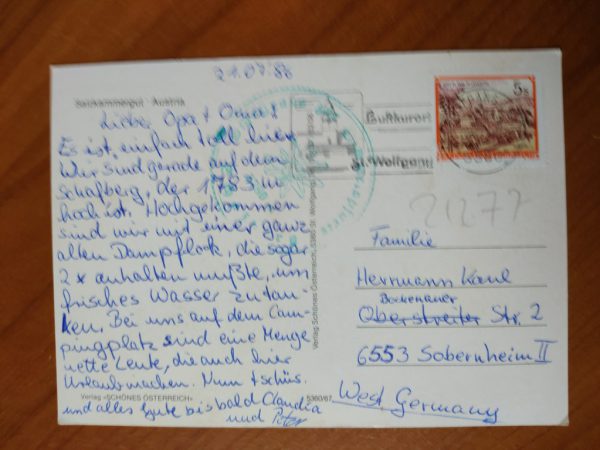 21.07.86
Salzkammergut - Austria
Lieber Opa + Oma!
Es ist einfach toll hier.
Wir sind gerade auf dem
Schafberg, der 1783 m
hoch ist. Hochgekommen
sind wir mit einer ganz
alten Dampflok, die sogar
2x anhalten mußte, um
frisches Wasser zu tan-
ken. Bei uns auf dem Cam-
pingplatz sind eine Menge
nette Leute, die auch hier
Urlaub machen. Nun tschüs
und alles Gute bis bald Claudia
und Peter
Verlag «SCHÖNES ÖSTERREICH»
5360/67
Verlag Schönes Österreich, 5360 St. Wolfgang
Luftkurort
St. Wolfgang
5s
21277
Familie
Herrmann Kaul
Bockenauer
Oberstreiter Str. 2
6553 Sobernheim II
West Germany